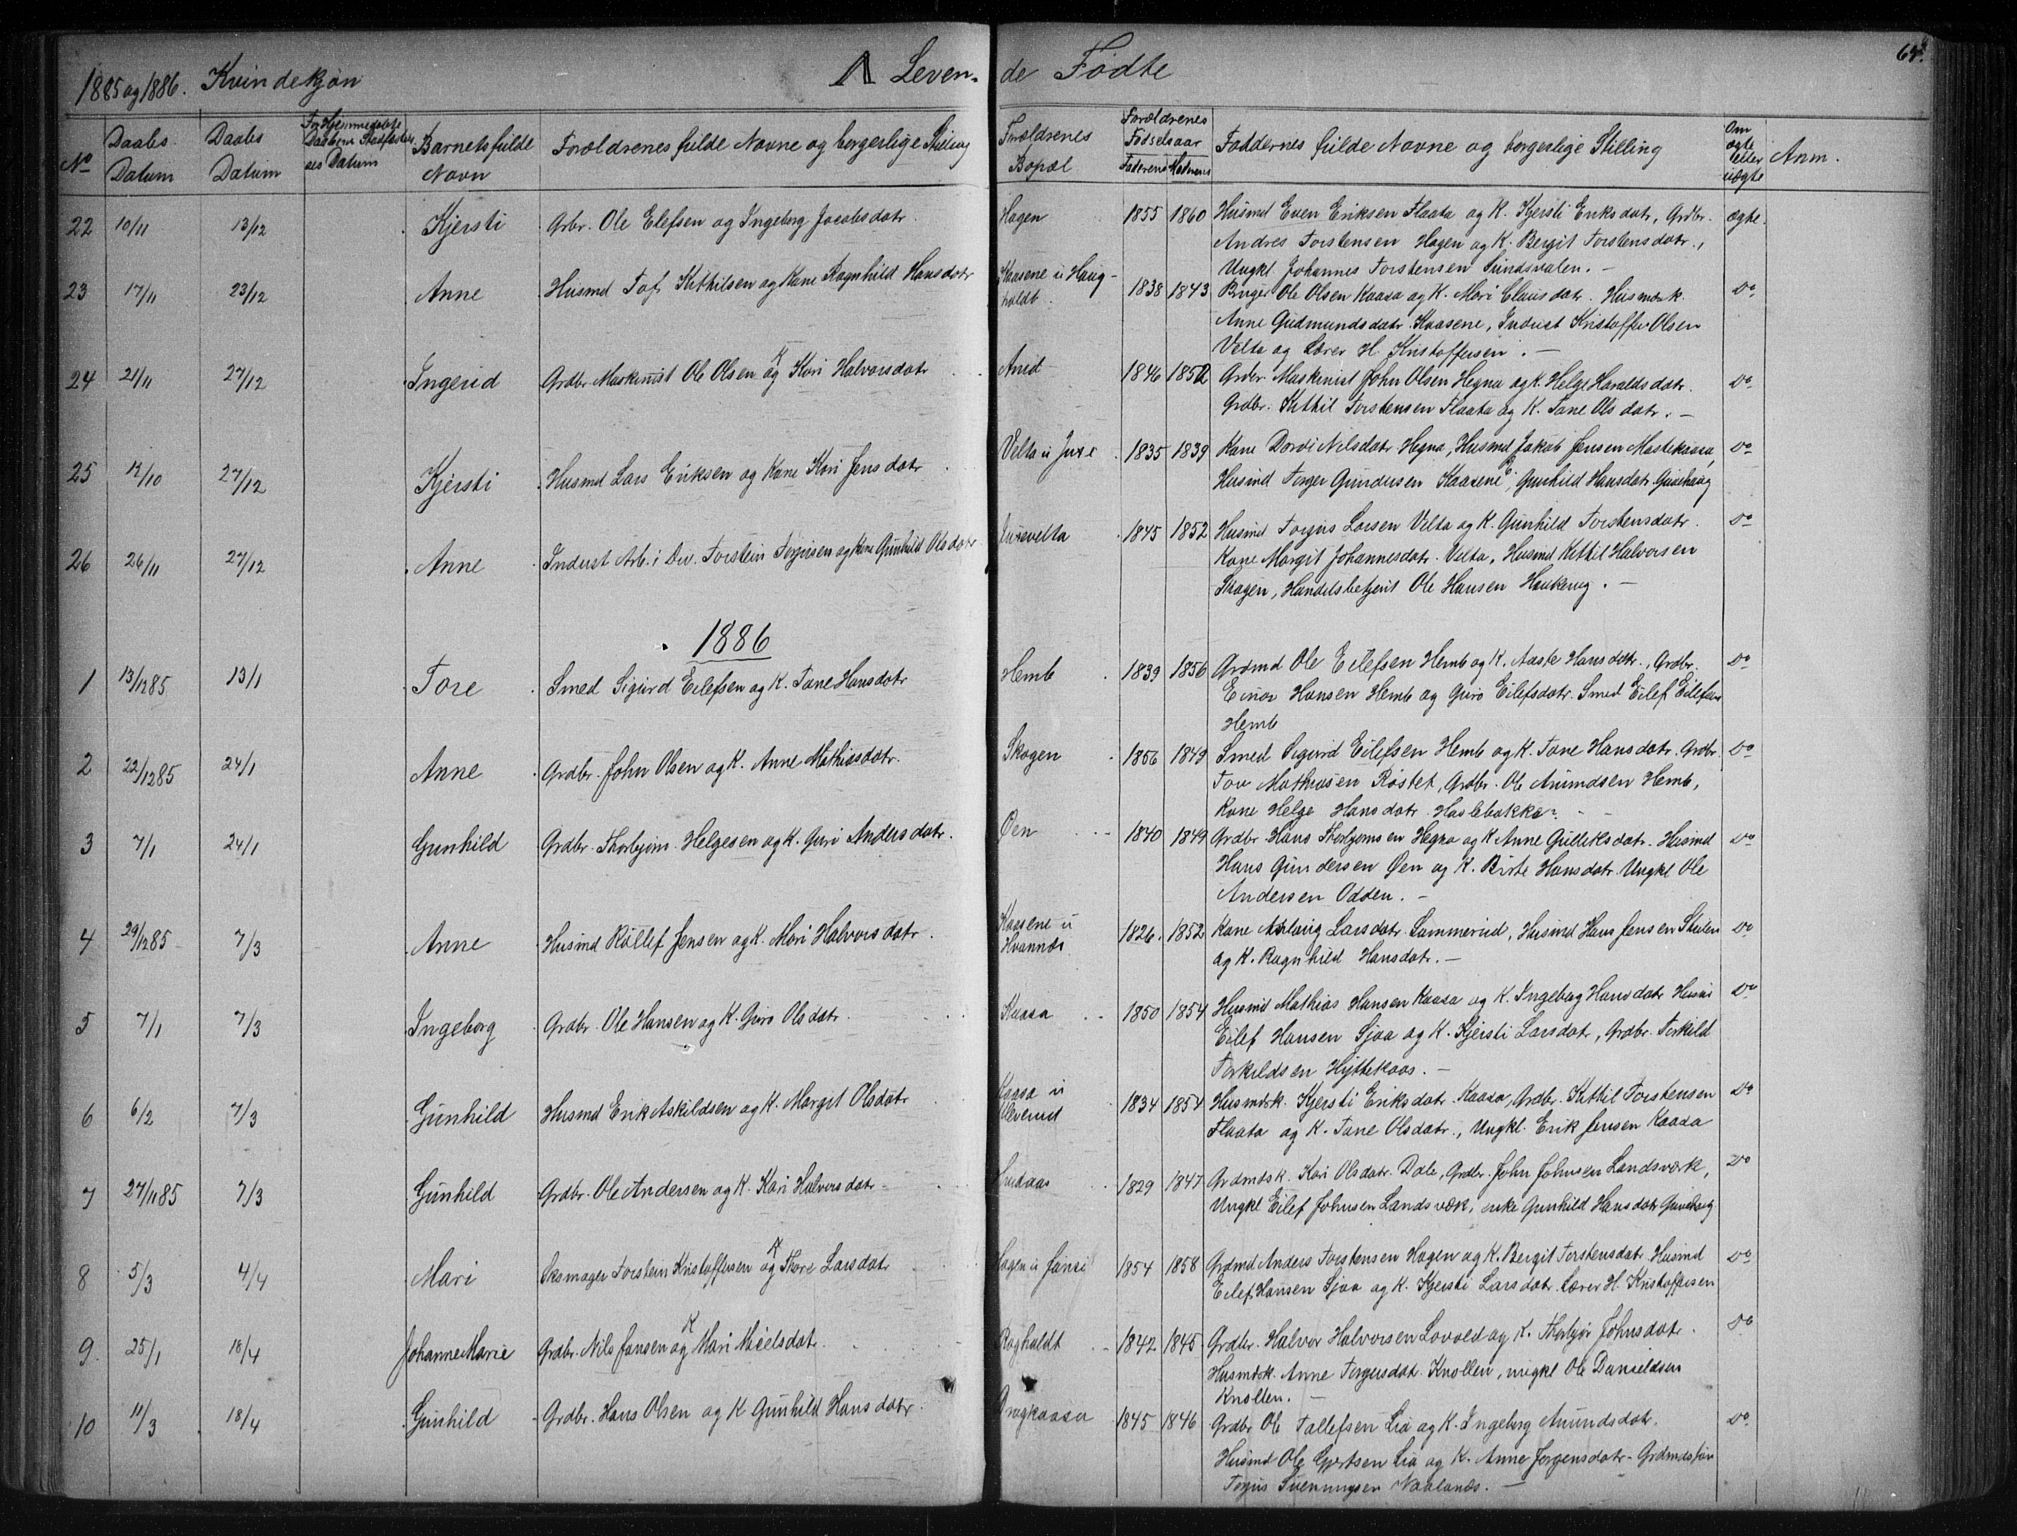 1885 og 1886. Kvindekjøn A Leven- de Fødte 64
No
Daabs Datum
Daabs Datum
Datum
Barnets fulde Navn
Forældrenes fulde Navne og borgerlige Stilling
Forældrenes Bopæl
Forældrenes Fødselsaar
Faderens Moderens
Faddernes fulde Navne og borgerslige Stilling
Om ægte eller uægte
Anm.
22 10/11 13/12 Kjersti Grbr. Ole Elefsen og Ingeborg Jacobsdatr. Hagen 1855 1860 Husmd Even Eriksen Flaata og K. Kjersti Eriksdatr, Grdbr. ægte.
Andres Torstensen Hagen og K. Bergit Torstensdatr.,
Ungkl. Johannes Torstensen Sundsvalen. -
23 17/11 23/12 Anne Husmd Tof Kittilsen og Kone Ragnhild Hansdatr Kaasene u Haugholdt. 1838 1843 Bruger Ole Olsen Kaasa og K. Mari Clausdatr. Husmdsk. Do
Anne Gudmundsdatr Kaasene, Indust Kristoffer Olsen
Velta og Lærer H Kristoffersen. -
24 21/11 27/12 Ingerid Grdbr Maskinist Ole Olsen og K Kari Halvorsdatr Anid 1846 1852 Grdbr. Maskinist John Olsen Hegna og K. Helge Haraldsdatr. Do
Grdbr. Kittil Torstensen Flaata og K. Tone Olsdatr. -
25 12/10 27/12 Kjersti Husmd Lars Eriksen og Kone Kari Jensdatr Velta u Juve 1835 1839 Kone Dorvi Nilsdatr Hegna, Husmd Jakob Jensen Mastekaasa, Do
Husmd Torger Gundersen Kaasene, Gunhild Hansdatr Gunehaug
26 26/11 27/12 Anne Indust Arb. i Dv. Torstein Torjusen og Kone Gunhild Olsdatr Juvevelta 1845 1852 Husmd Torjus Larsen Velta og K. Gunhild Torstensdatr. Do
Kone Margit Johannesdatr. Velta, Husmd Kittil Halvorsen
Skogen, Handelsbetjent Ole Hansen Haukerug. -
1886
1 13/12 85 13/1 Tore Smed Sigurd Eilefsen og K. Tone Hansdatr Hemb 1839 1856 Grdmd Ole Eilefsen Hemb og K. Aaste Hansdatr., Grdbr. Do
Einar Hansen Hemb og Guro Eilefsdatr. Smed Eilef Eilefsen
Hemb
2 22/12 85 24/1 Anne Grdbr. John Olsen og K. Anne Mathisdatr. Skogen 1856 1849 Smed Sigurd Eilefsen Hemb og K. Tone Hansdatr. Grdbr Do
Tov Mathiasen Røstet, Grdbr. Ole Amundsen Hemb,
Kone Helge Hansdatr Haslebakke. -
3 7/1 24/1 Gunhild Grdbr. Thorbjørn Helgesen og K. Guri Andersdatr. Øen 1840 1849 Grdbr Hans Thorbjørnsen Hegna og K Anne Gulliksdatr. Husmd Do
Hans Gundersen Øen og K. Birte Hansdatr. Ungkl Ole
Andersen Odden. -
4 29/12 85 7/3 Anne Husmd Rollef Jensen og K. Mari Halvorsdatr. Kaasene u Hvannæs 1826. 1852 Kone Aslaug Larsdatr. Sammerud, Husmd Hans Jensen Stulen Do
og K. Ragnhild Hansdatr. -
5 7/1 7/3 Ingeborg Grdbr. Ole Hansen og K. Guro Olsdatr. Kaasa 1850 1854 Husmd Mathias Hansen Kaasa og K. Ingeborg Hansdatr Husm Do
Eilef Hansen Sjaa og K. Kjersti Larsdatr, Grdbr. Torkild
Torkildsen Hyttekaas. -
6 6/2 7/3 Gunhild Husmd Erik Askildsen og K. Margit Olsdatr Kaasa u Kleverud 1834 1854 Husmdsk. Kjersti Eriksdatr. Kaasa, Grdbr. Kittil Torstensen Do
Flaata og K. Tone Olsdatr., Ungkl. Erik Jensen Kaasa
7 27/11 85 7/3 Gunhild Grdbr. Ole Andersen og K. Kari Halvorsdatr. 1829 1847 Grdmdsk. Kari Olsdatr. Dale, Grdbr. John Johnsen Landsværk, Do
Ungkl Eilef Johnsen Landsværk, enke Gunhild Hansdatr Gunehaug
8 5/3 4/4 Mari Skomager Torstein Kristoffersen og K Thore Larsdatr Hagen u Jansi 1854 1858 Grdmd Anders Torstensen Hagen og K. Bergit Torstensdatr. Husmd Do
Eilef Hansen Sjaa og K. Kjersti Larsdatr. Lærer H. Kristoffersen
9 25/1 18/4 Johanne Marie Grdbr. Nils Jansen og K Mari Nielsdatr. Rogholdt 1842 1845 Grdbr. Halvor Halvorsen Lovold og K. Thorbjør Johnsdatr. Do
Husmdsk. Anne Torgersdatr. Knollen, ungkl Ole Danieldsen
Knollen. -
10 11/3 18/4 Gunhild Grdbr. Hans Olsen og K Gunhild Hansdatr. Dragkaasa 1845 1846 Grdbr Ole Tallefsen Lia og K. Ingeborg Amundsdatr. Do
Husmd Ole Gjertsen Lia og K. Anne Jorgensdatr. Grdmdssøn
Torjus Svenningsen Naalands. -